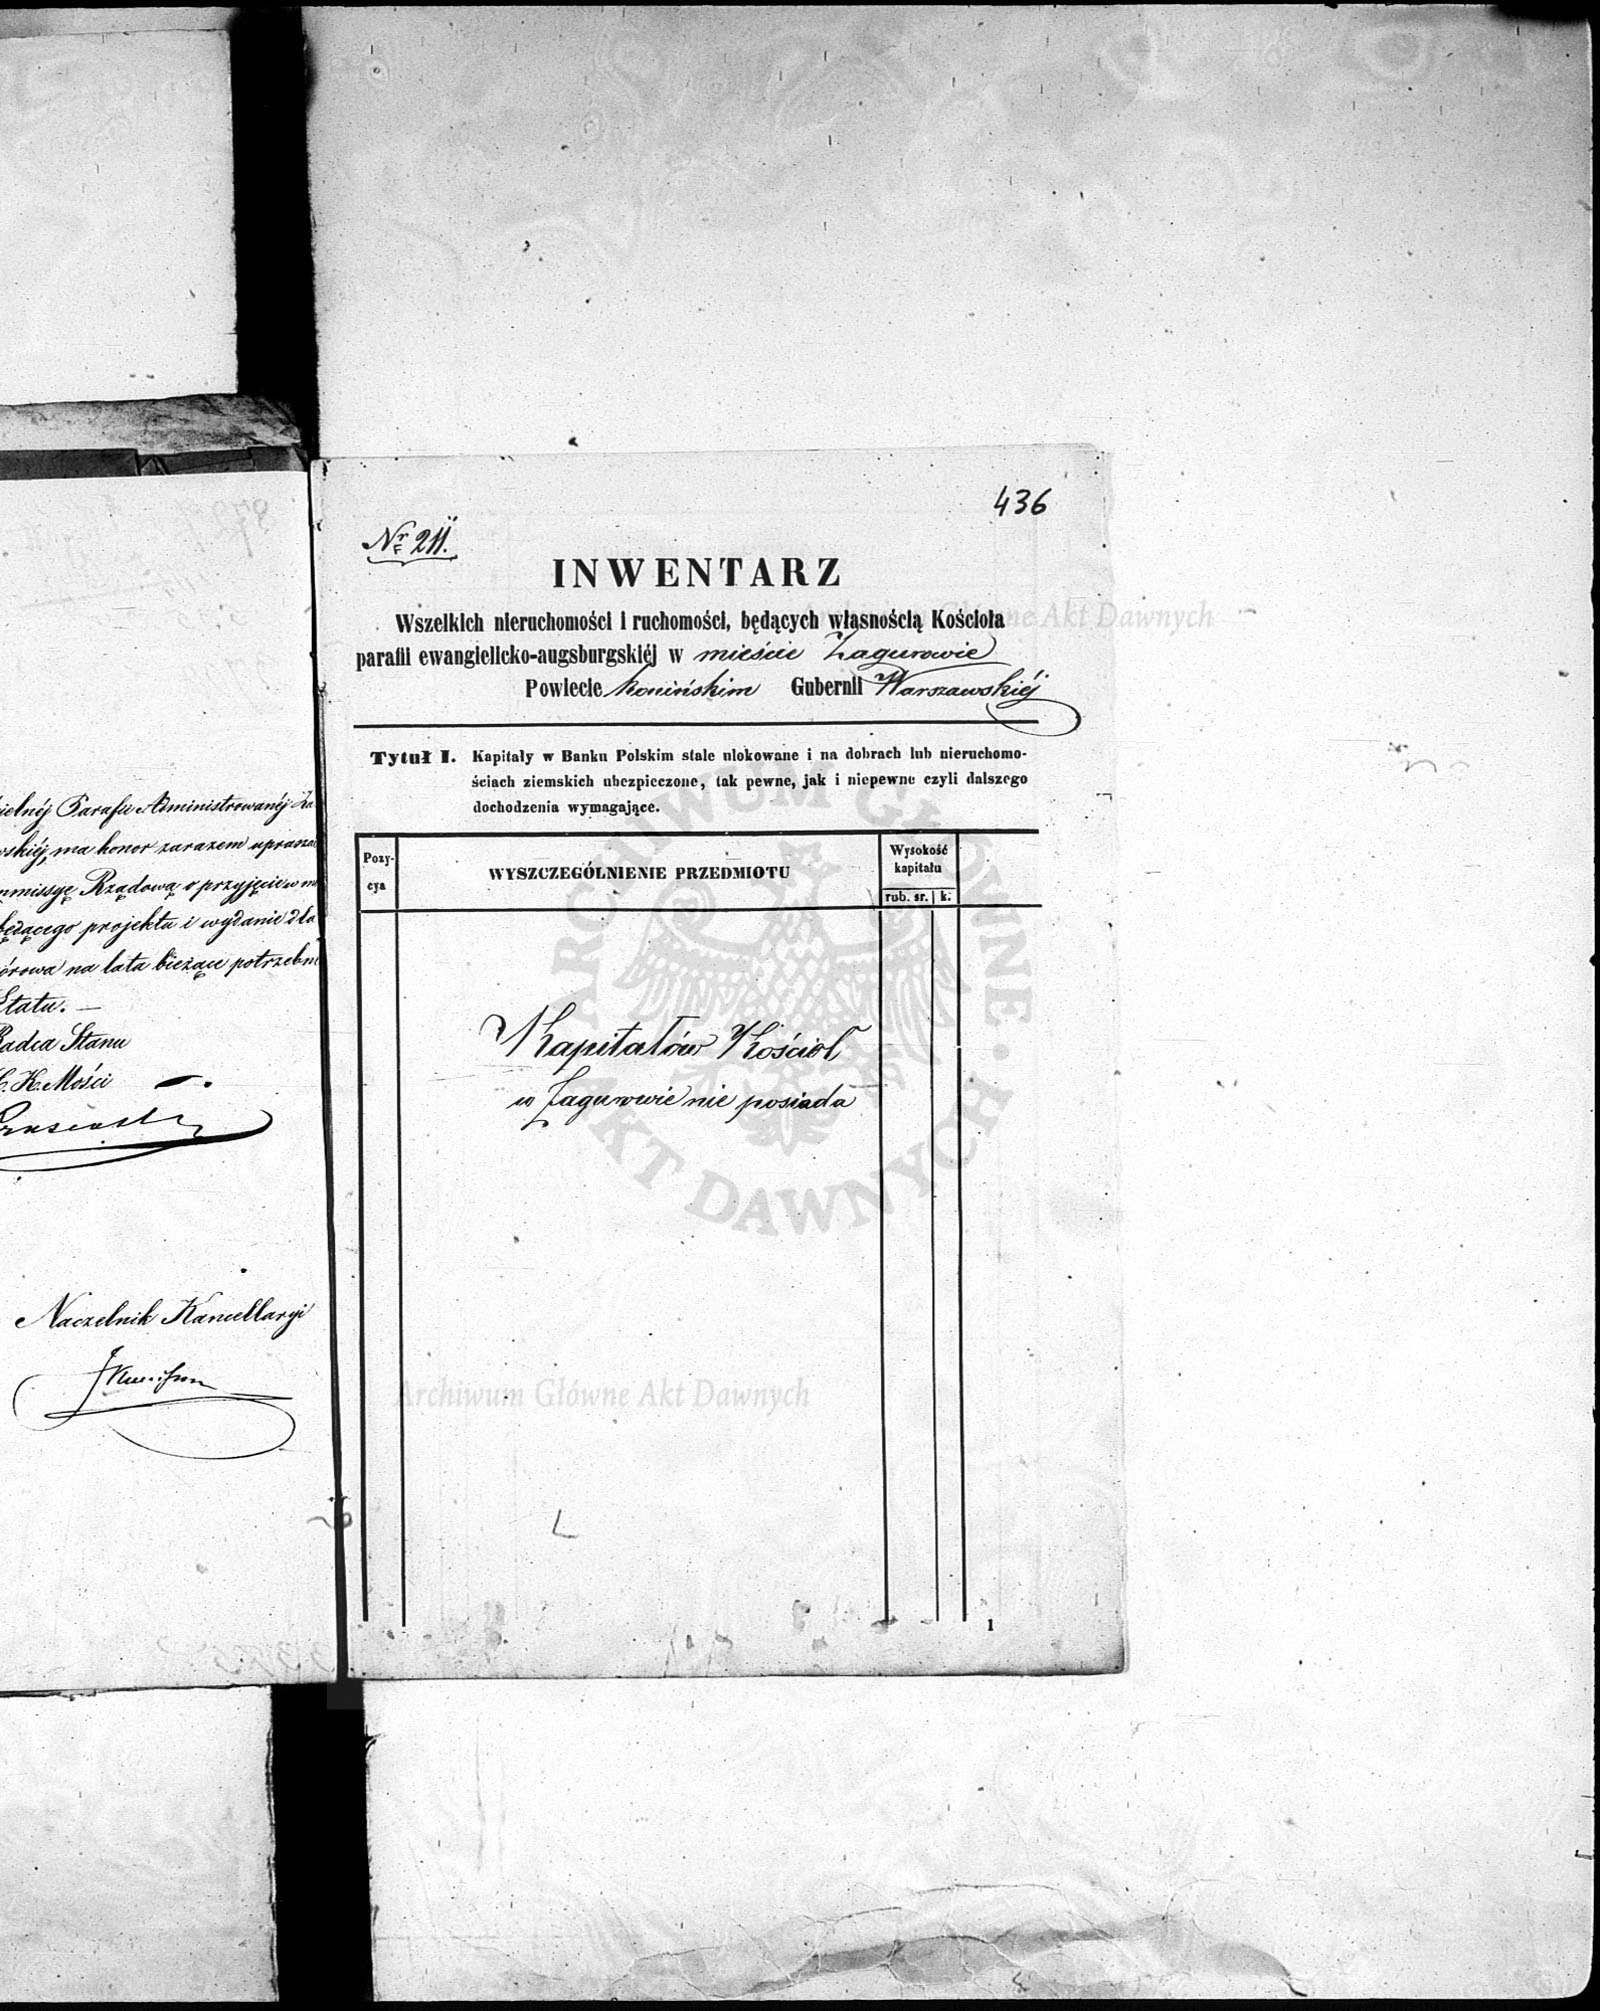 ielnéj Parafii Administrowanéj Za
wskiéj, ma honor zarazem uprasza
mmissyę Rządową o przyjęcie w m
będącego projektu i wydanie dla
órowa na lata bieżące potrzebn
Etatu. —
Radca Stanu
C. K. Mości
Naczelnik Kancellaryi
436
Nr F 211.
INWENTARZ
Wszelkich nieruchomości i ruchomości, będących własnością Kościoła
parafii ewangielicko-augsburgskiéj w mieście Zagurowie
Powiecie Konińskim Gubernii Warszawskiéj
Tytuł I. Kapitały w Banku Polskim stale ulokowane i na dobrach lub nieruchomo-
ściach ziemskich ubezpieczone, tak pewne, jak i niepewne czyli dalszego
dochodzenia wymagające.
Pozy-
cya
WYSZCZEGÓLNIENIE PRZEDMIOTU
Wysokość
kapitału
rub. sr. k.
Kapitałów Kościoł
w Zagurowie nie posiada
1
Archiwum Główne Akt Dawnych
ARCHIWUM GŁÓWNE AKT DAWNYCH
Archiwum Główne Akt Dawnych